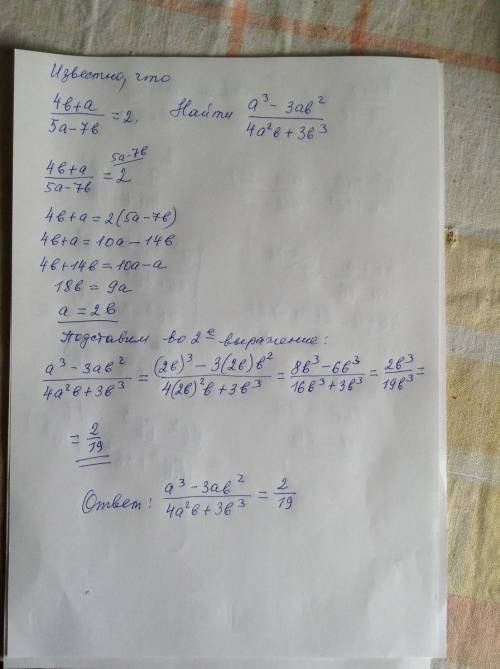 Известно, что
(4в+а)/(5а-7в) = 2, Найти (а³-3ав²)/(4а²в+3в³)
(4в+а)/(5а-7в) = 2 5а-7в
4в+а=2(5а-7в)
4в+а=10а-14в
4в+14в=10а-а
18в=9а
а=2в
Подставим во 2е выражение:
(а³-3ав²)/(4а²в+3в³) = ((2в)³-3(2в)в²)/(4(2в)²в+3в³) = (8в³-6в³)/(16в³+3в³) = 2в³/19в³ =
= 2/19
Ответ: (а³-3ав²)/(4а²в+3в³) = 2/19